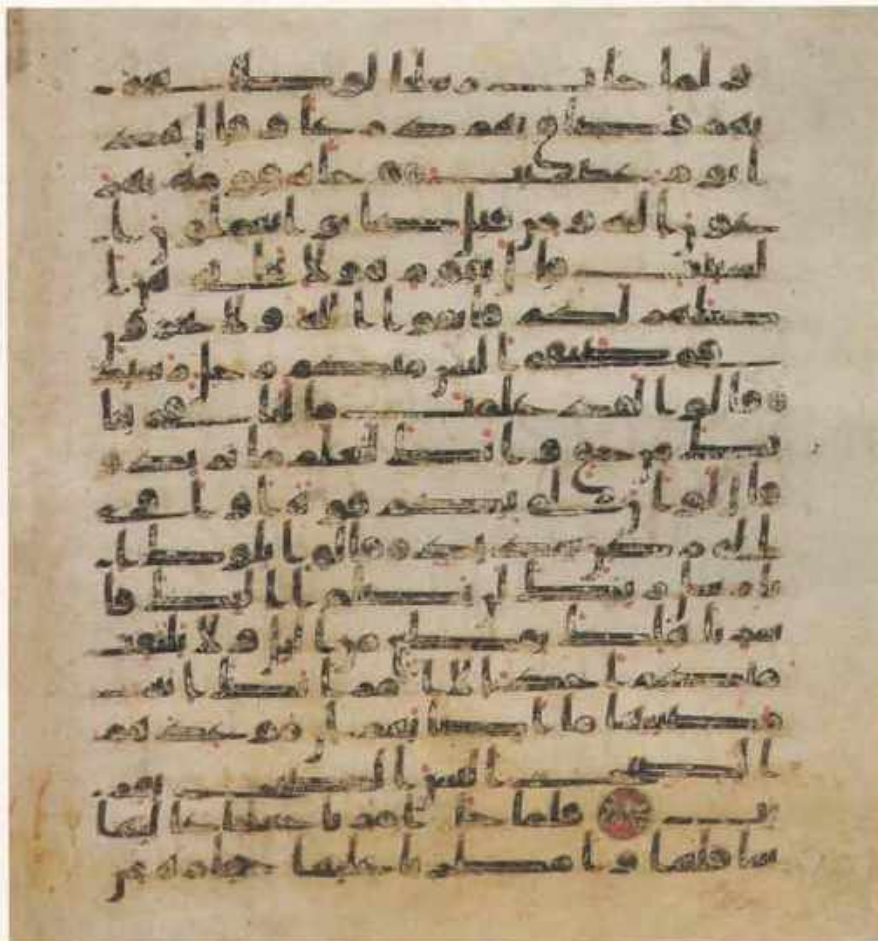 و لما جات رسلنا لوطا سى
بهم و ضاق بهم ذرعا و قال هذ
ا يوم عصيب ۝ و جاه قومه يهر
عون اليه و من قبل كانوا يعملون ا
لسيت قال يقوم هولا بناتي هن ا
طهر لكم فاتقوا الله و لا تخزون
في ضيفي اليس منكم رجل رشيد
۝ قالوا لقد علمت ما لنا في بنا
تك من حق و انك لتعلم ما نريد ۝
قال لو ان لي بكم قوة او اوي
الى ركن شديد ۝ قالوا يلوط ا
نا رسل ربك لن يصلوا اليك فا
سر باهلك بقطع من اليل و لا يلتفت
منكم احد الا امراتك انه
مصيبها ما اصابهم ان موعدهم
الصبح اليس الصبح بقر
يب ۝ فلما جا امرنا جعلنا عاليها
سافلها و امطرنا عليها حجارة من